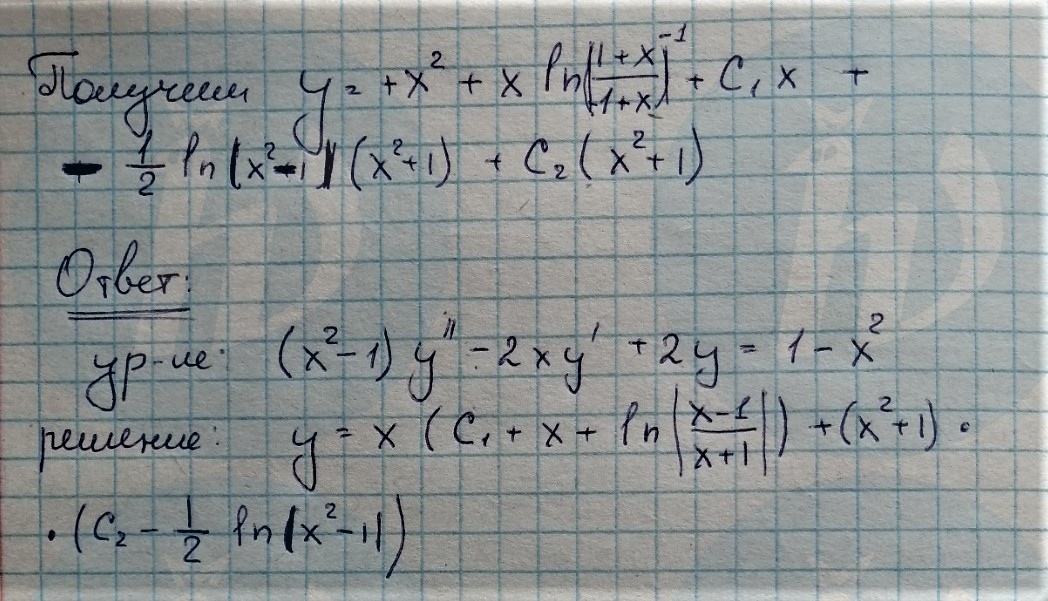 Получим y = +x² + x ln|(1+x)/(-1+x)|⁻¹ + C₁x +
- 1/2 ln|x²-1| (x²+1) + C₂(x²+1)
Ответ:
ур-ие: (x²-1)y'' - 2xy' + 2y = 1 - x²
решение: y = x (C₁ + x + ln|(x-1)/(x+1)|) + (x²+1) ·
· (C₂ - 1/2 ln|x²-1|)